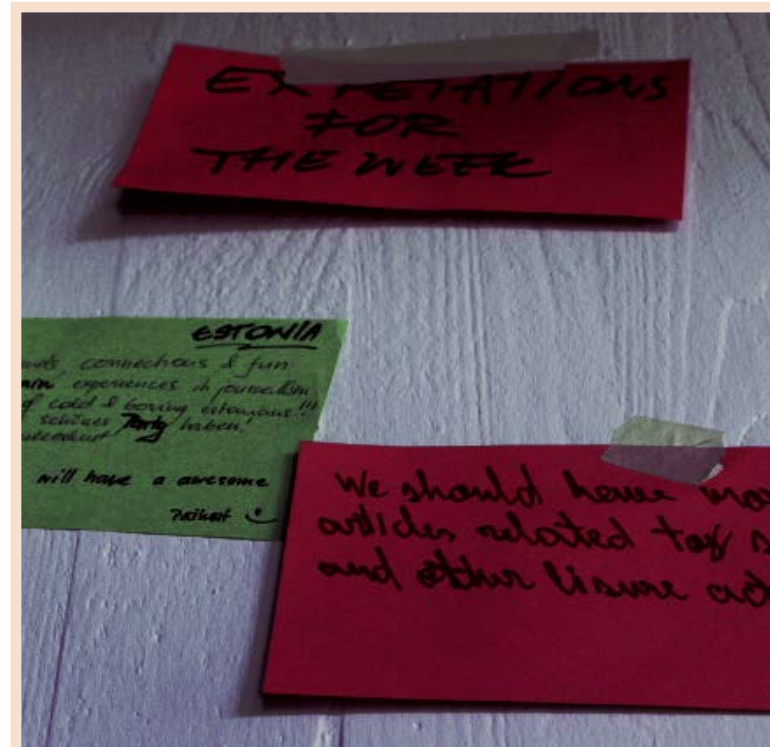 EXPETATIONS
FOR
THE WEEK
ESTONIA
connections & fun
experiences in journalism
of cold & boring estonians!!!
schönes Party haben!
will have a awesome
We should have
articles related to
and other lisure